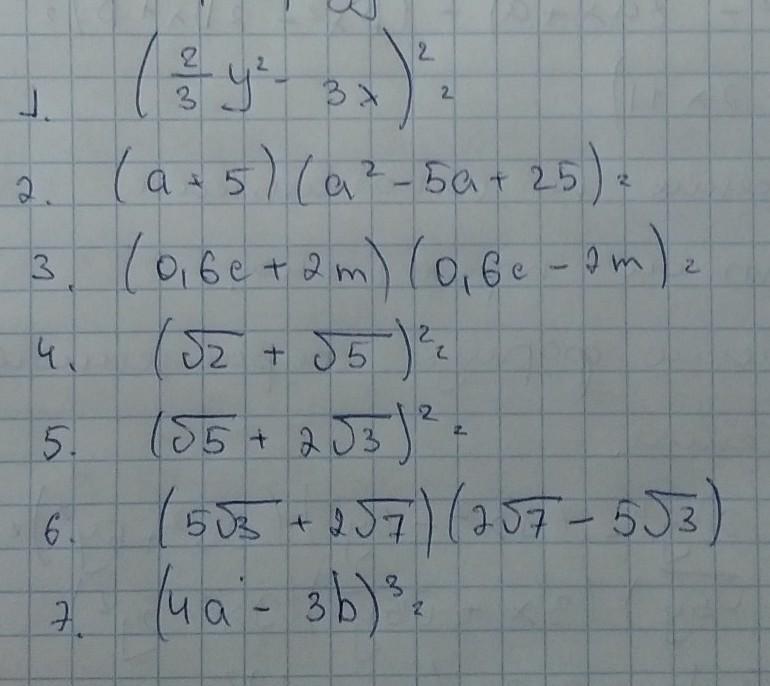 1. (2/3 y² - 3x)² =
2. (a + 5)(a² - 5a + 25) =
3. (0,6c + 2m)(0,6c - 2m) =
4. (√2 + √5)² =
5. (√5 + 2√3)² =
6. (5√3 + 2√7)(2√7 - 5√3)
7. (4a - 3b)³ =